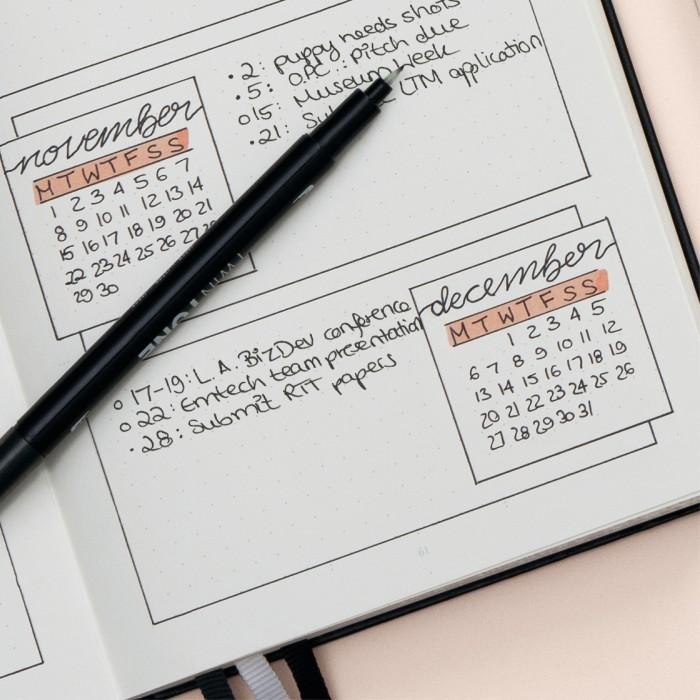 november
M T W T F S S
1 2 3 4 5 6 7
8 9 10 11 12 13 14
15 16 17 18 19 20 21
22 23 24 25 26 27
29 30
• 2: puppy needs shots
• 5: O.P.C.: pitch due
o 15: Museum Week
• 21: LTM application
TONE
december
M T W T F S S
1 2 3 4 5
6 7 8 9 10 11 12
13 14 15 16 17 18 19
20 21 22 23 24 25 26
27 28 29 30 31
o 17-19: L.A. BizDev conference
o 22: Emtech team presentation
• 28: Submit RIT papers
61